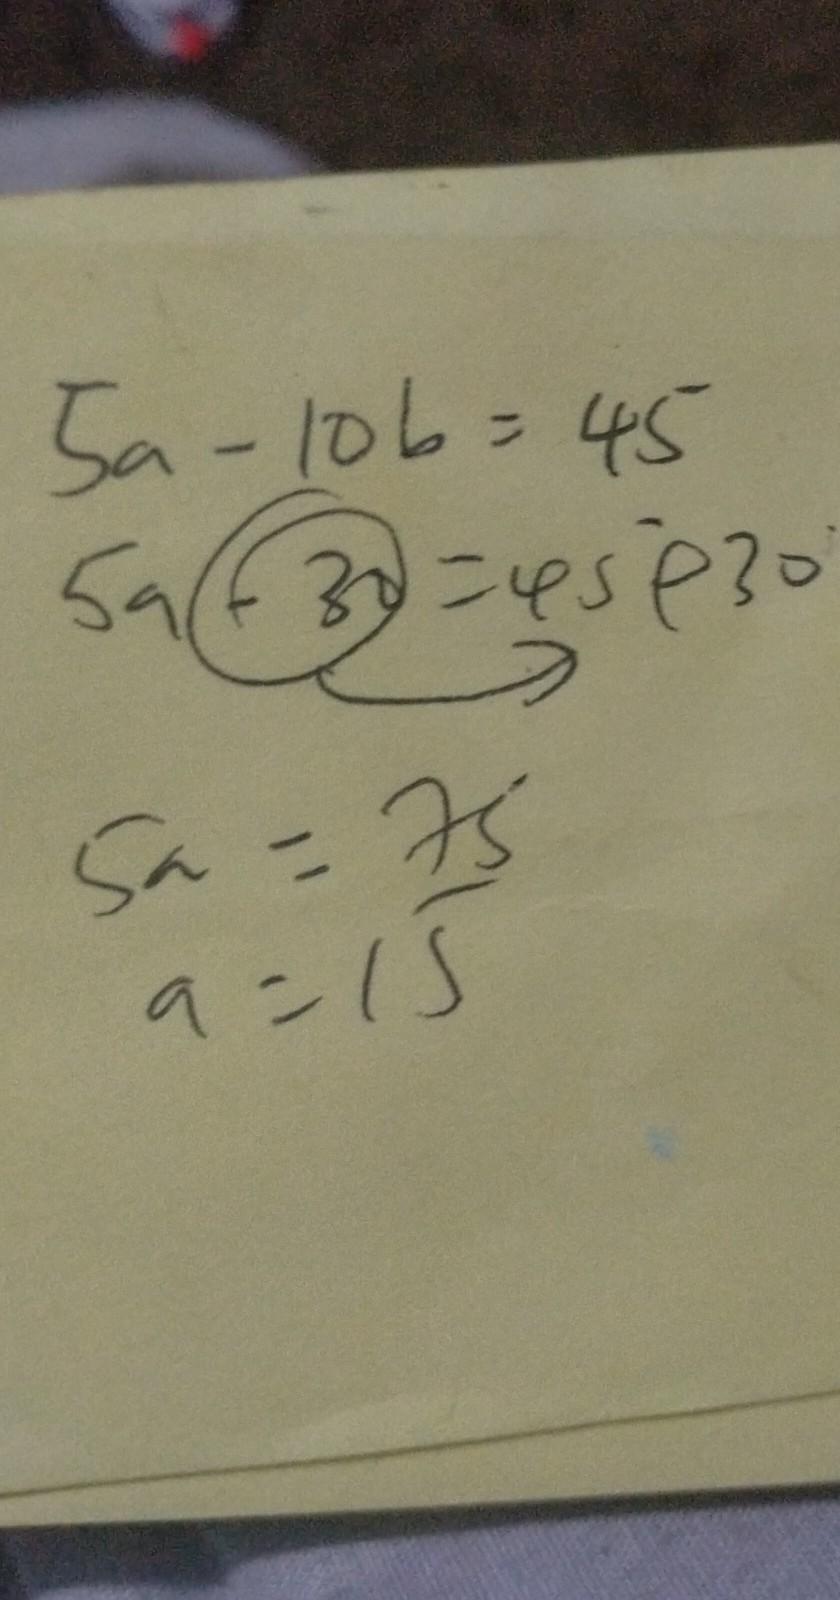 5a - 10b = 45
5a - 30 = 45 + 30
5a = 75
a = 15